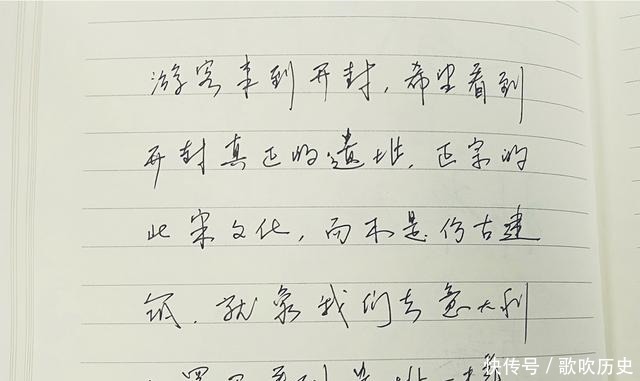 游客来到开封,希望看到
开封真正的遗址,正宗的
北宋文化,而不是仿古建
筑.就象我们去意大利
快传号/歌吹历史